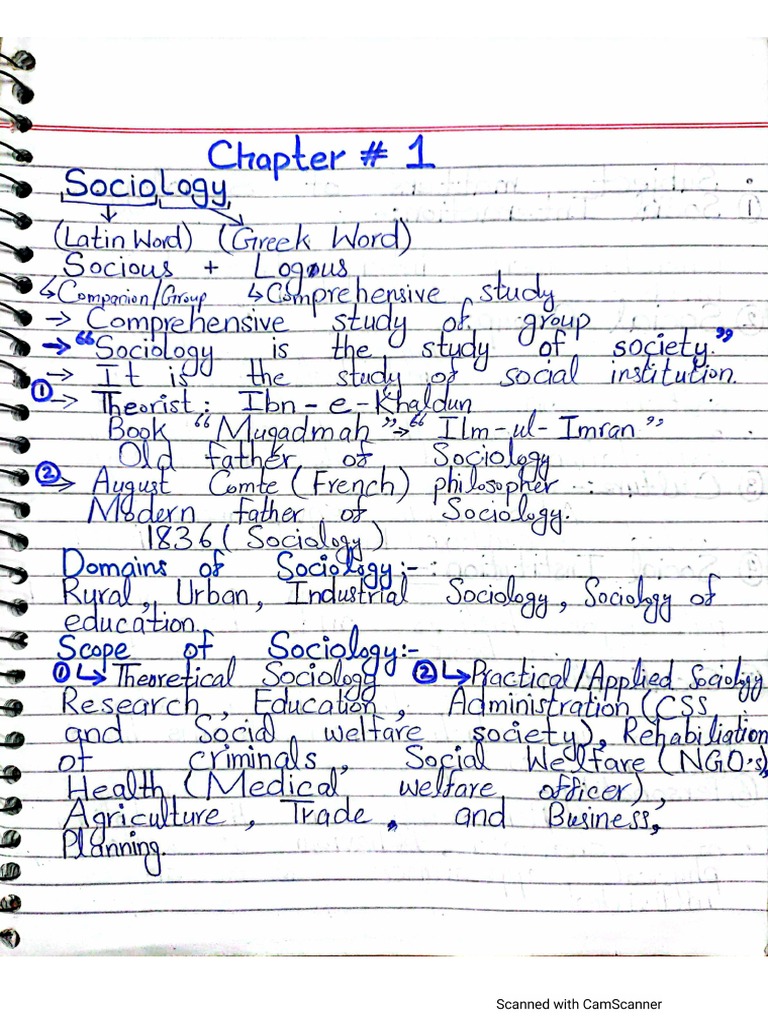 Chapter # 1
Sociology
(Latin Word) (Greek Word)
Socious + Logous
↳Companion/Group ↳Comprehensive study
→ Comprehensive study of group
→ "Sociology is the study of society."
→ It is the study of social institution.
① → Theorist: Ibn-e-Khaldun
Book "Muqadmah" → "Ilm-ul-Imran"
Old father of Sociology
② → August Comte (French) philosopher
Modern father of Sociology.
1836 (Sociology)
Domains of Sociology:-
Rural, Urban, Industrial Sociology, Sociology of
education.
Scope of Sociology:-
① ↳ Theoretical Sociology ② ↳ Practical/Applied Sociology
Research, Education, Administration (CSS
and Social welfare society), Rehabiliation
of criminals, Social Welfare (NGO's),
Health (Medical welfare officer),
Agriculture, Trade, and Business,
Planning.
Scanned with CamScanner